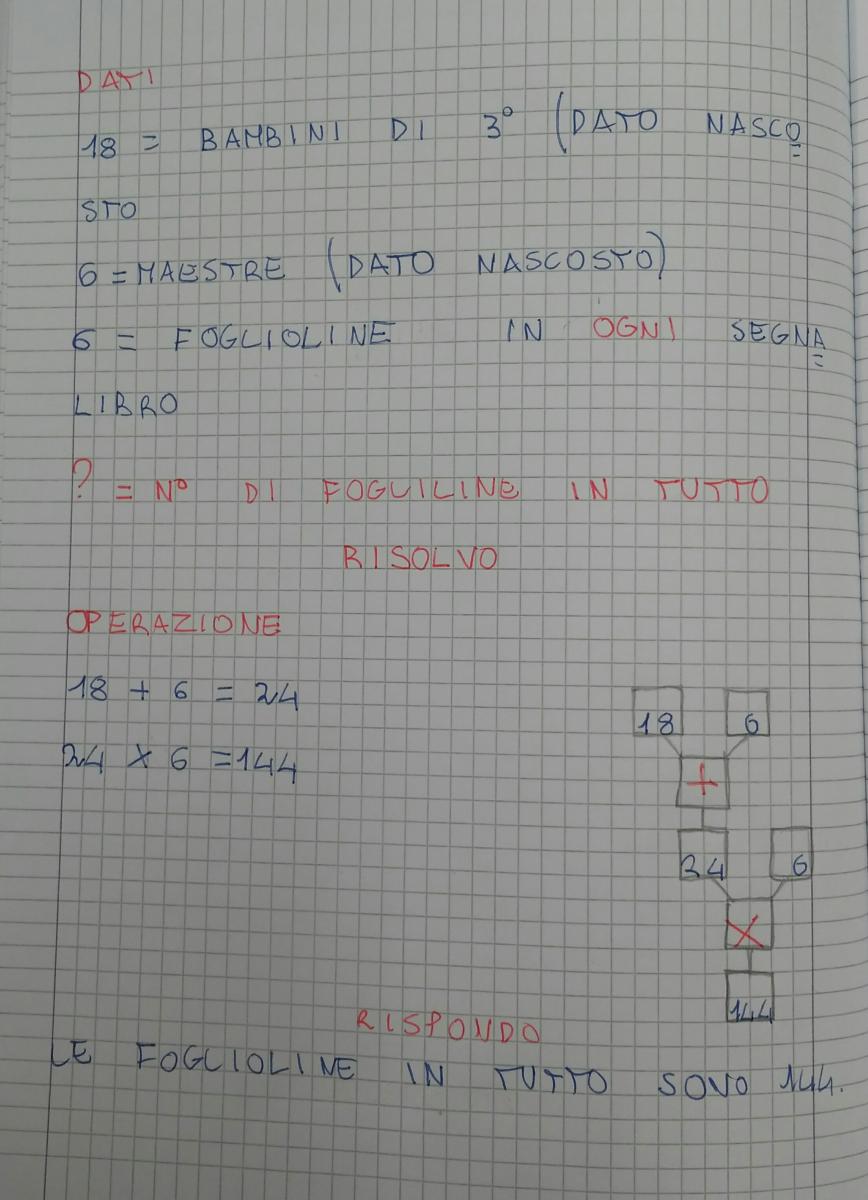 DATI
18 = BAMBINI DI 3° (DATO NASCO
STO
6 = MAESTRE (DATO NASCOSTO)
6 = FOGLIOLINE IN OGNI SEGNA
LIBRO
? = N° DI FOGLILINE IN TUTTO
RISOLVO
OPERAZIONE
18 + 6 = 24
24 X 6 = 144
18 6
+
34 6
X
144
RISPONDO
LE FOGLIOLINE IN TUTTO SONO 144.